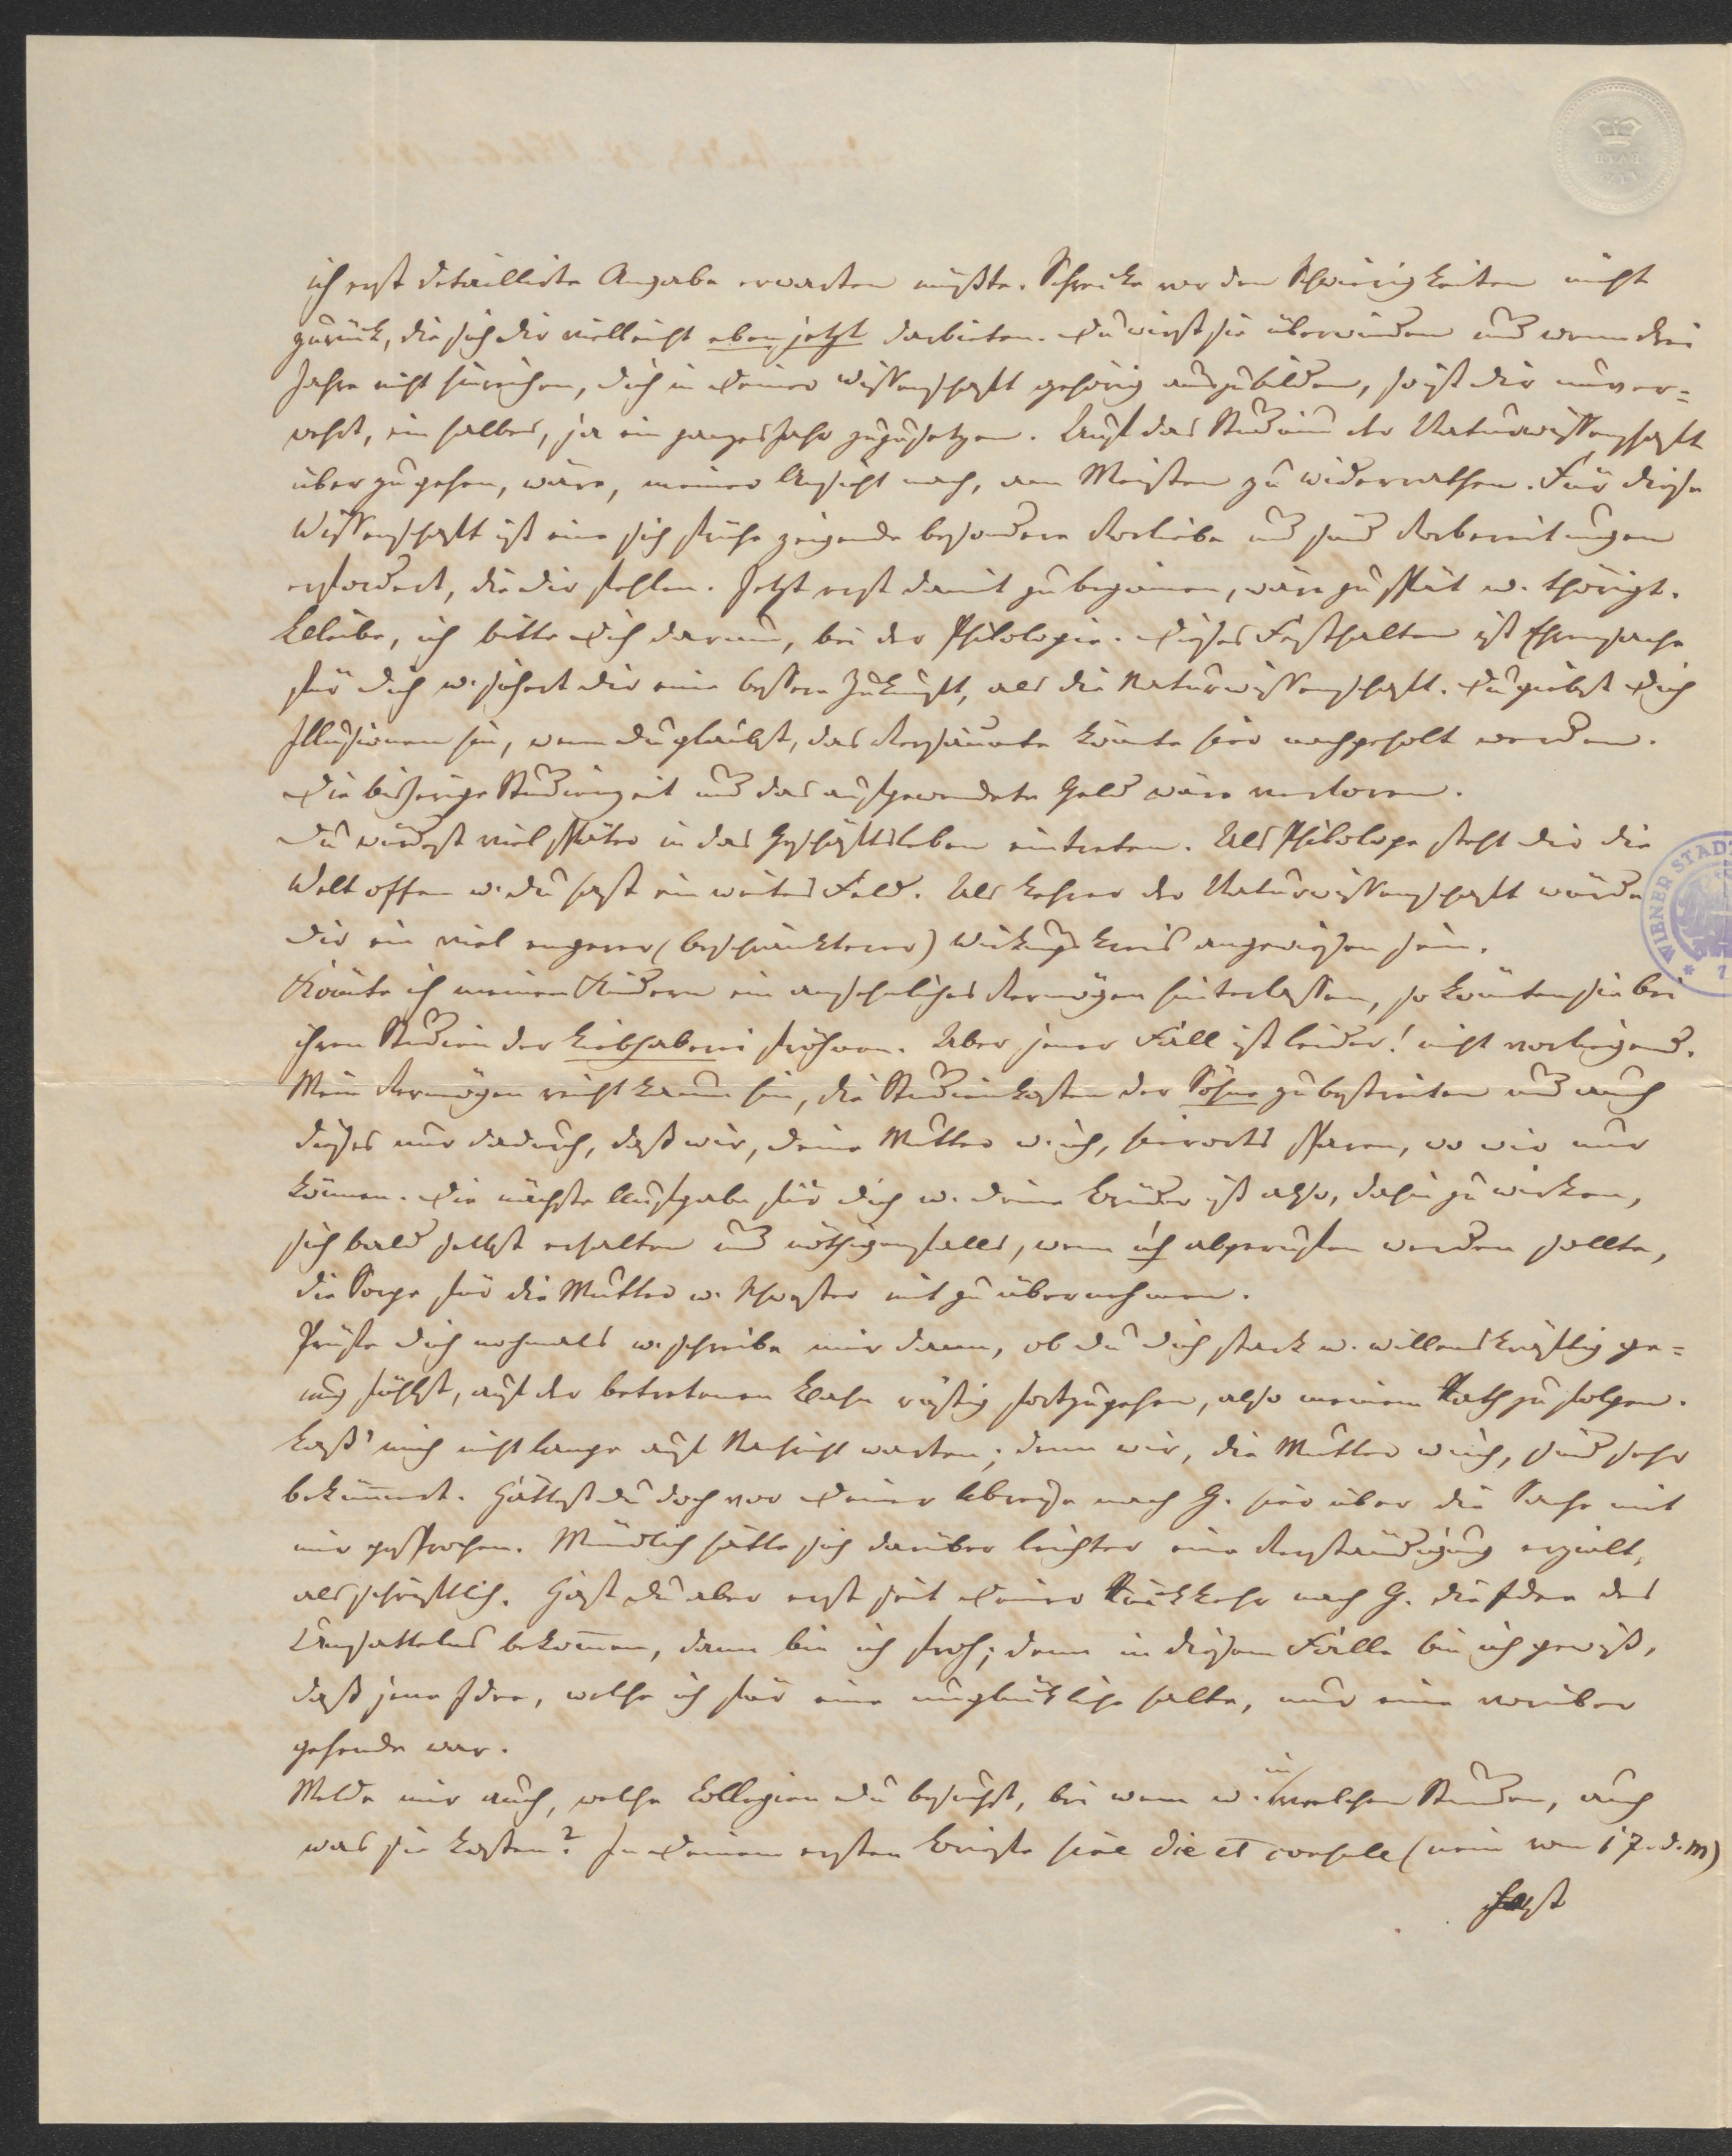 BATH
ich erst detaillirte Angabe erwarten müßte. Schrecke vor den Schwierigkeiten nicht
zurück, die sich dir vielleicht eben jetzt darbieten. Du wirst sie überwinden und wenn drei
Jahre nicht hinreichen, dich in Deiner Wissenschaft gehörig auszubilden, so ist dir unver=
wehrt, ein halbes, ja ein ganzes Jahr zuzusetzen. Auf das Studium der Naturwissenschaft
überzugehen, wäre, meiner Ansicht nach, am Meisten zu widerrathen. Für diese
Wissenschaft ist eine sich frühe zeigende besondere Vorliebe und sind Vorbereitungen
erfordert, die dir fehlen. Jetzt erst damit zu beginnen, wäre zu spät u. thörigt.
Bleibe, ich bitte Dich darum, bei der Philologie. Dieses Festhalten ist Ehrensache
für Dich u. sichert dir eine bessere Zukunft, als die Naturwissenschaft. Du giebst Dich
Illusionen hin, wenn du glaubst, das Versäumte könnte hier nachgeholt werden.
Die bisherige Studienzeit und das aufgewendete Geld wäre verloren.
Du würdest viel später in das Geschäftsleben eintreten. Als Philologe steht dir die
Welt offen u. du hast ein weites Feld. Als Lehrer der Naturwissenschaft würde
dir ein viel engerer (beschränkterer) Wirkungskreis angewiesen sein.
Könnte ich meinen Kindern ein ansehnliches Vermögen hinterlassen, so könnten sie bei
ihren Studien der Liebhaberei fröhnen. Aber jener Fall ist leider! nicht vorliegend.
Mein Vermögen reicht kaum hin, die Studienkosten der Söhne zu bestreiten und auch
dieses nur dadurch, daß wir, deine Mutter u. ich, hierorts sparen, wo wir nur
können. Die nächste Aufgabe für dich u. deine Brüder ist also, dahin zu wirken,
sich bald selbst erhalten und nöthigenfalls, wenn ich abgerufen werden sollte,
die Sorge für die Mutter u. Schwester mit zu übernehmen.
Prüfe dich nochmals u. schreibe mir dann, ob du dich stark u. willenskräftig ge=
nug fühlst, auf der betretenen Bahn rüstig fortzugehen, also meinem Rath zu folgen.
Laß' mich nicht lange auf Nachricht warten; denn wir, die Mutter u. ich, sind sehr
bekümmert. Hättest du doch vor Deiner Abreise nach G. hier über die Sache mit
mir gesprochen. Mündlich hätte sich darüber leichter eine Verständigung erzielt,
als schriftlich. Hast du aber erst seit Deiner Rückkehr nach G. die Idee des
Umsattelns bekommen, dann bin ich froh; denn in diesem Falle bin ich gewiß,
daß jene Idee, welche ich für eine unglückliche halte, nur eine vorüber
gehende war.
Melde mir auch, welche Collegien du besuchst, bei wem u. in welchen Stunden, auch
was sie kosten? In Deinem ersten Briefe sine die et consule (nein vom 17. d. M)
hast
WIENER STADT
* 7